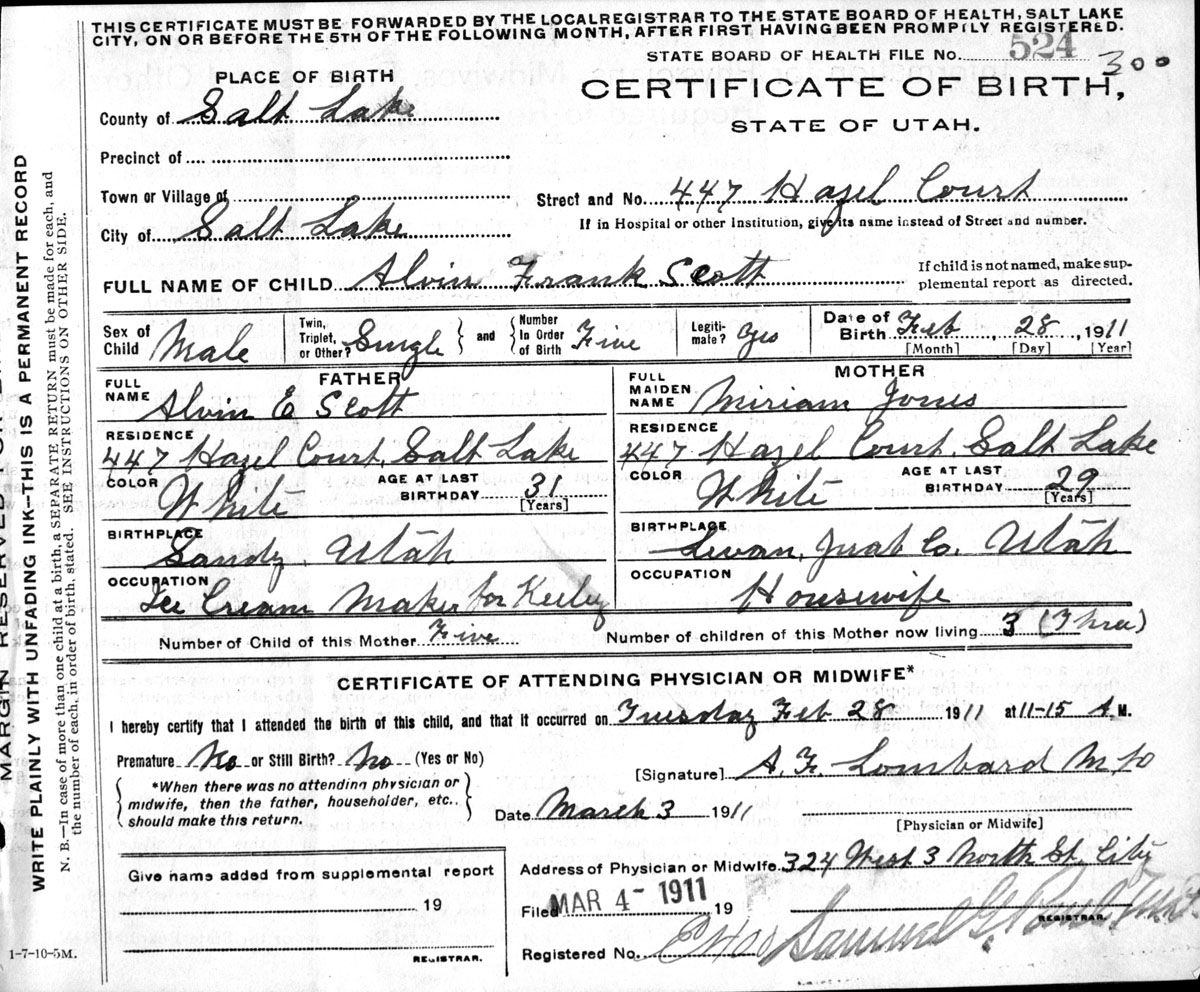 THIS CERTIFICATE MUST BE FORWARDED BY THE LOCAL REGISTRAR TO THE STATE BOARD OF HEALTH, SALT LAKE
CITY, ON OR BEFORE THE 5TH OF THE FOLLOWING MONTH, AFTER FIRST HAVING BEEN PROMPTLY REGISTERED.
STATE BOARD OF HEALTH FILE No. 524 300
PLACE OF BIRTH
CERTIFICATE OF BIRTH,
STATE OF UTAH.
County of Salt Lake
Precinct of
Town or Village of
Street and No. 447 Hazel Court
If in Hospital or other Institution, give its name instead of Street and number.
City of Salt Lake
FULL NAME OF CHILD Alvin Frank Scott
If child is not named, make sup-
plemental report as directed.
Sex of Child Male
Twin, Triplet, or Other? Single and Number In Order of Birth Five
Legiti-mate? Yes
Date of Birth Feb, 28, 1911
[Month] [Day] [Year]
FATHER
FULL NAME Alvin E Scott
RESIDENCE
447 Hazel Court, Salt Lake
COLOR White AGE AT LAST BIRTHDAY 31
[Years]
BIRTHPLACE
Sandy, Utah
OCCUPATION
Ice Cream Maker for Keeley
MOTHER
FULL MAIDEN NAME Miriam Jones
RESIDENCE
447 Hazel Court, Salt Lake
COLOR White AGE AT LAST BIRTHDAY 29
[Years]
BIRTHPLACE
Levan, Juab Co. Utah
OCCUPATION
Housewife
Number of Child of this Mother Five Number of children of this Mother now living 3 (Three)
CERTIFICATE OF ATTENDING PHYSICIAN OR MIDWIFE*
I hereby certify that I attended the birth of this child, and that it occurred on Tuesday Feb 28 1911 at 11-15 A M.
Premature No or Still Birth? No (Yes or No)
*When there was no attending physician or
midwife, then the father, householder, etc.,
should make this return.
[Signature] A. F. Lombard MD
Date March 3 1911
[Physician or Midwife]
Give name added from supplemental report
19
REGISTRAR.
Address of Physician or Midwife 324 West 3 North St. City
Filed MAR 4- 1911 19
REGISTRAR.
Registered No. Samuel G.
1-7-10-5M.
MARGIN RESERVED FOR
WRITE PLAINLY WITH UNFADING INK—THIS IS A PERMANENT RECORD
N. B.—In case of more than one child at a birth, a SEPARATE RETURN must be made for each, and
the number of each, in order of birth, stated. SEE INSTRUCTIONS ON OTHER SIDE.